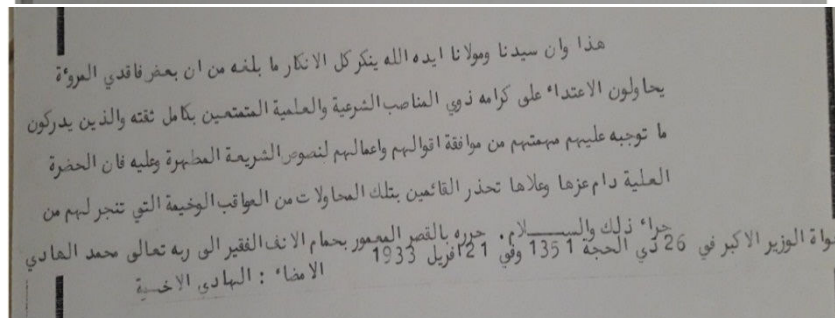 هذا وان سيدنا ومولانا ايده الله ينكر كل الانكار ما بلغه من ان بعض فاقدي المروءة
يحاولون الاعتداء على كرامه ذوي المناصب الشرعية والعلمية المتمتعين بكامل ثقته والذين يدركون
ما توجبه عليهم مهمتهم من موافقة اقوالهم واعمالهم لنصوص الشريعة المطهرة وعليه فان الحضرة
العلية دام عزها وعلاها تحذر القائمين بتلك المحاولات من العواقب الوخيمة التي تنجر لهم من
جراء ذلك والســـلام. حرره بالقصر المعمور بحمام الانف الفقير الى ربه تعالى محمد الهادي
الاخوة الوزير الاكبر في 26 ذي الحجة 1351 وفي 21 افريل 1933 الامضاء : الهادي الاخـوة